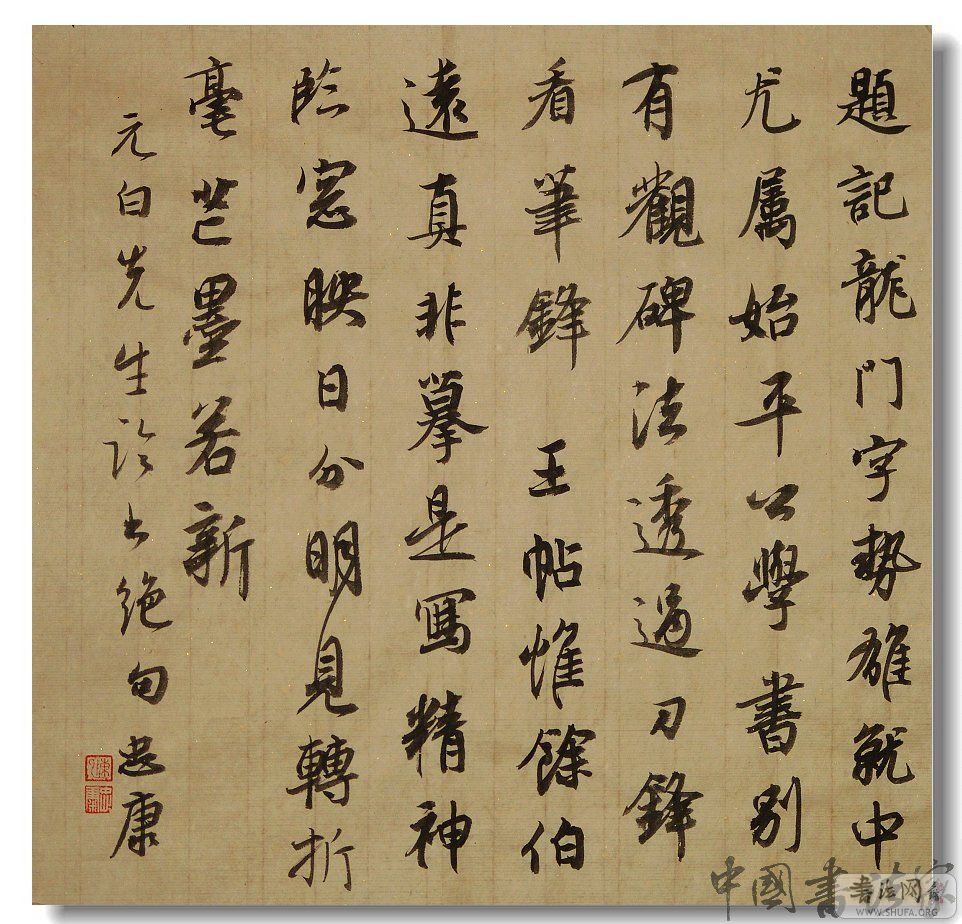 題記龍門字勢雄就中
尤属始平公學書別
有觀碑法透過刀鋒
看筆鋒 王帖惟餘伯
遠真非摹是寫精神
臨窓映日分明見轉折
毫芒墨若新
元白先生論書絕句 忠康
中國書法家
書法网
WWW.SHUFA.ORG